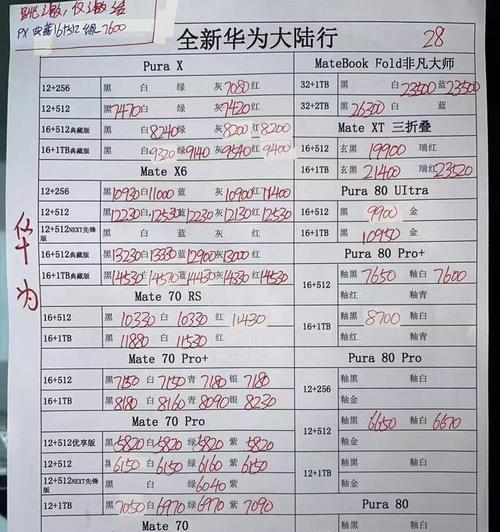 PX 典藏16+512 绿 7600
全新华为大陆行
28
华为
Pura X
12+256 黑 白 绿 灰7080红
12+512 黑7470白 绿 灰7420红
16+512典藏版 黑 白8240绿 灰8200红8200
16+1TB典藏版 黑 白9320绿9140灰9540红9400
Mate X6
12+256 黑10930白11000蓝 灰10900红11400
12+512 黑12230白12530蓝12230灰12130红12530
12+512NEXT先锋版 黑 白 蓝 灰 红
16+512典藏版 黑13230白13330蓝12900灰13000
16+1TB典藏版 黑14530白14570蓝14430灰14330红14530
Mate 70 RS
16+512 黑10330白10330红11430
16+1TB 黑11880白11530红
Mate 70 Pro+
16+512 黑7150白7150青7180银7180
16+1TB 黑8180白8160青8090银8230
Mate 70 Pro
12+512优享版 黑5820白5820绿5820紫5820
12+512 黑6150白6150绿6160紫6150
12+512NEXT先锋版 黑 白 绿6040紫
12+1TB 黑7050白6970绿6970紫7090
Mate 70
MateBook Fold非凡大师
32+1TB 黑 白23500蓝23500
32+2TB 黑26300白 蓝
Mate XT 三折叠
16+512 玄黑 19900 瑞红
16+1TB 玄黑 21400 瑞红23520
Pura 80 Ultra
16+512 黑 9900 金
16+1TB 黑 10950 金
Pura 80 Pro+
16+512 釉黑 7650 釉白 7600
釉红 釉青
16+1TB 釉黑 8700 釉白
釉红 釉青
Pura 80 Pro
12+256 釉黑 釉白
釉金
12+512 釉黑6650 釉白 6670
釉金
12+1TB 釉黑 釉白
釉金
Pura 80